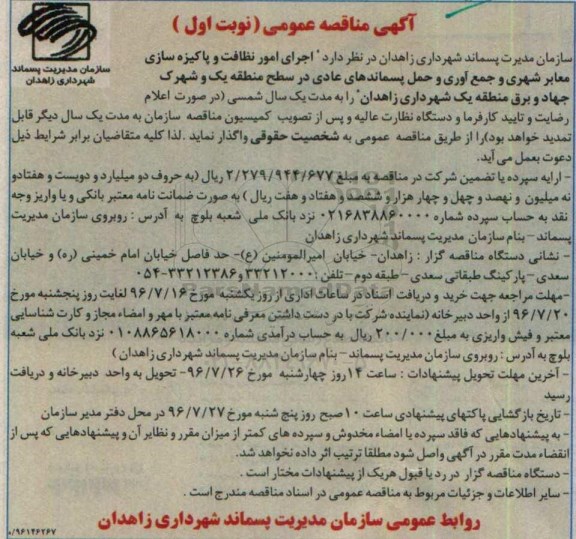 آگهی مناقصه عمومی (نوبت اول)
سازمان مدیریت پسماند
شهرداری زاهدان
سازمان مدیریت پسماند شهرداری زاهدان در نظر دارد " اجرای امور نظافت و پاکیزه سازی
معابر شهری و جمع آوری و حمل پسماندهای عادی در سطح منطقه یک و شهرک
جهاد و برق منطقه یک شهرداری زاهدان" را به مدت یک سال شمسی (در صورت اعلام
رضایت و تایید کارفرما و دستگاه نظارت عالیه و پس از تصویب کمیسیون مناقصه سازمان به مدت یک سال دیگر قابل
تمدید خواهد بود) را از طریق مناقصه عمومی به شخصیت حقوقی واگذار نماید .لذا کلیه متقاضیان برابر شرایط ذیل
دعوت بعمل می آید.
- ارایه سپرده یا تضمین شرکت در مناقصه به مبلغ ۲/۲۷۹/۹۴۴/۶۷۷ ریال (به حروف دو میلیارد و دویست و هفتادو
نه میلیون و نهصد و چهل و چهار هزار و ششصد و هفتاد و هفت ریال ) به صورت ضمانت نامه معتبر بانکی و یا واریز وجه
نقد به حساب سپرده شماره ۰۲۱۶۸۳۸۸۶۰۰۰۰ نزد بانک ملی شعبه بلوچ به آدرس : روبروی سازمان مدیریت
پسماند – بنام سازمان مدیریت پسماند شهرداری زاهدان
- نشانی دستگاه مناقصه گزار : زاهدان- خیابان امیرالمومنین (ع)- حد فاصل خیابان امام خمینی (ره) و خیابان
سعدی – پارکینگ طبقاتی سعدی – طبقه دوم – تلفن : ۳۳۲۱۲۰۰۰ و ۳۳۲۱۲۳۸۶-۰۵۴
-مهلت مراجعه جهت خرید و دریافت اسناد در ساعات اداری از روز یکشنبه مورخ ۹۶/۷/۱۶ لغایت روز پنجشنبه مورخ
۹۶/۷/۲۰ از واحد دبیرخانه (نماینده شرکت با در دست داشتن معرفی نامه معتبر با مهر و امضاء مجاز و کارت شناسایی
معتبر و فیش واریزی به مبلغ ۲۰۰/۰۰۰ ریال به حساب درآمدی شماره ۰۱۰۸۸۶۵۶۱۸۰۰۰ نزد بانک ملی شعبه
بلوچ به آدرس : روبروی سازمان مدیریت پسماند – بنام سازمان مدیریت پسماند شهرداری زاهدان )
- آخرین مهلت تحویل پیشنهادات : ساعت ۱۴ روز چهارشنبه مورخ ۹۶/۷/۲۶- تحویل به واحد دبیرخانه و دریافت
رسید
- تاریخ بازگشایی پاکتهای پیشنهادی ساعت ۱۰ صبح روز پنج شنبه مورخ ۹۶/۷/۲۷ در محل دفتر مدیر سازمان
- به پیشنهادهایی که فاقد سپرده یا امضاء مخدوش و سپرده های کمتر از میزان مقرر و نظایر آن و پیشنهادهایی که پس از
انقضاء مدت مقرر در آگهی واصل شود مطلقا ترتیب اثر داده نخواهد شد.
- دستگاه مناقصه گزار در رد یا قبول هریک از پیشنهادات مختار است .
- سایر اطلاعات و جزئیات مربوط به مناقصه عمومی در اسناد مناقصه مندرج است .
روابط عمومی سازمان مدیریت پسماند شهرداری زاهدان
۰/۹۶۱۴۶۲۶۷